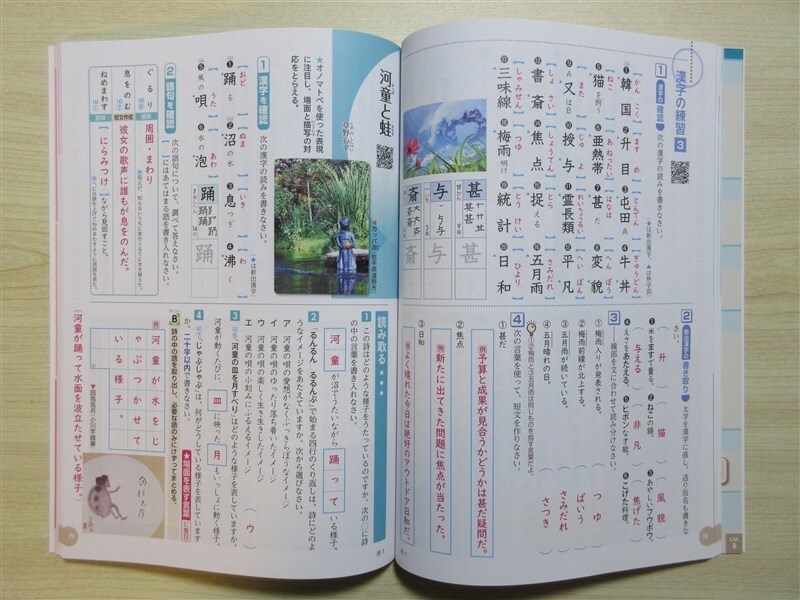 漢字の練習 3
1 漢字の確認 次の漢字の読みを書きなさい。
★は新出漢字、▲は熟字訓
1 韓国 かんこく
2 升目 ますめ
3 屯田 とんでん
4 牛丼 ぎゅうどん
5 猫を飼う ねこ
6 亜熱帯 あねったい
7 甚だ はなはだ
8 変貌 へんぼう
9 又は また
10 授与 じゅよ
11 霊長類 れいちょうるい
12 平凡 へいぼん
13 書斎 しょさい
14 焦点 しょうてん
15 捉える とら
16 五月雨 さみだれ
17 三味線 しゃみせん
18 梅雨明け つゆ
19 統計 とうけい
20 日和 ひより
甚
与
斎
2 新出漢字の書き取り 太字を漢字に直し、送り仮名も書きなさい。
1 米をますで量る。 升
2 ねこの額。 猫
3 あやしいフウボウ。 風貌
4 えさをあたえる。 与える
5 ヒボンな才能。 非凡
6 こげた料理。 焦げた
3 線部を文に合わせて読み分けなさい。
①梅雨入りが発表される。 つゆ
②梅雨前線が北上する。 ばいう
③五月雨が続いている。 さみだれ
④五月晴れの日。 さつき
4 次の言葉を使って、短文を作りなさい。
①甚だ
例 予算と成果が見合うかどうかは甚だ疑問だ。
②焦点
例 新たに出てきた問題に焦点が当たった。
③日和
例 よく晴れた今日は絶好のアウトドア日和だ。
河童と蛙
草野心平
★オノマトペを使った表現に注目し、場面と描写の対応をとらえる。
1 漢字を確認 次の漢字の読みを書きなさい。
★は新出漢字
1 踊る おど
2 沼の水 ぬま
3 息つぎ いき
4 沸く わ
5 風の唄 うた
6 水の泡 あわ
踊
2 語句を確認 次の語句について、調べて答えなさい。
□にはあてはまる語を書き入れなさい。
ぐるり 意味 周囲・まわり
息をのむ 短文作成 彼女の歌声に誰もが息をのんだ。
ねめまわす 意味 にらみつけながら見回すこと。
読み取る
1 この詩はどのような様子をうたっているのですか。次の□に詩の中の言葉を書き入れなさい。
河童が沼でうたいながら踊っている様子。
2 「るんるん るるんぶ」で始まる四行のくり返しは、詩にどのようなイメージをあたえていますか。次から選びなさい。
ア 河童の唄の愛想がなくぶっきらぼうなイメージ
イ 河童の唄のゆったり落ち着いたイメージ
ウ 河童の唄の楽しく生き生きしたイメージ
エ 河童の唄の小刻みにふるえるイメージ
（ウ）
3 「河童の皿を月すべり」はどのような様子を表していますか。
河童が動くたびに、皿に映った月もいっしょに動く様子。
4 「じゃぶじゃぶ」は、何がどうしている様子を表していますか。二十字以内で書きなさい。
★場面を表す言葉に着目
詩の中の語を取り出し、必要な語のみにけずってまとめる。
例 河童が水をじゃぶつかせている様子。
河童が踊って水面を波立たせている様子。